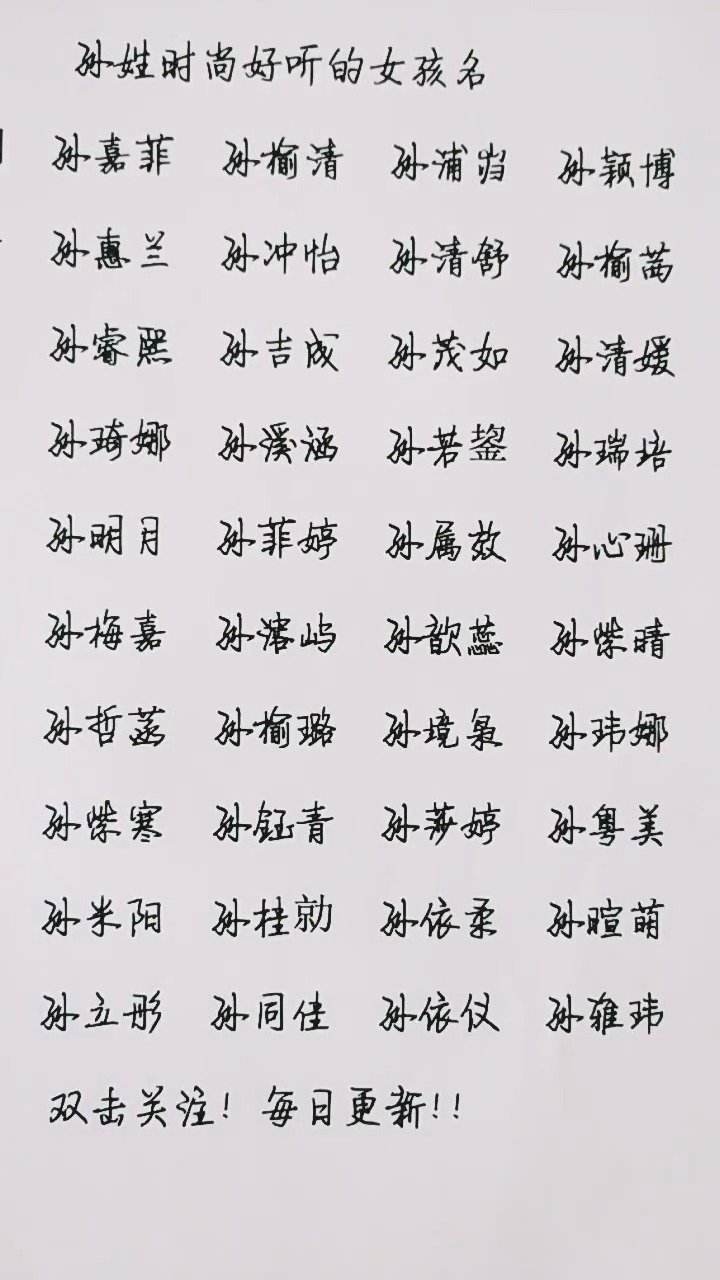 孙姓时尚好听的女孩名
孙嘉菲 孙榆清 孙浦岿 孙颖博
孙惠兰 孙冲怡 孙清舒 孙榆茜
孙睿熙 孙吉成 孙茂如 孙清媛
孙琦娜 孙溪涵 孙若鋆 孙瑞培
孙明月 孙菲婷 孙属效 孙心珊
孙梅嘉 孙潞屿 孙歆蕊 孙紫晴
孙哲菡 孙榆璐 孙境枭 孙玮娜
孙紫寒 孙钰青 孙莎婷 孙粤美
孙米阳 孙桂勍 孙依柔 孙暄萌
孙立彤 孙同佳 孙依仪 孙雅玮
双击关注！每日更新！！